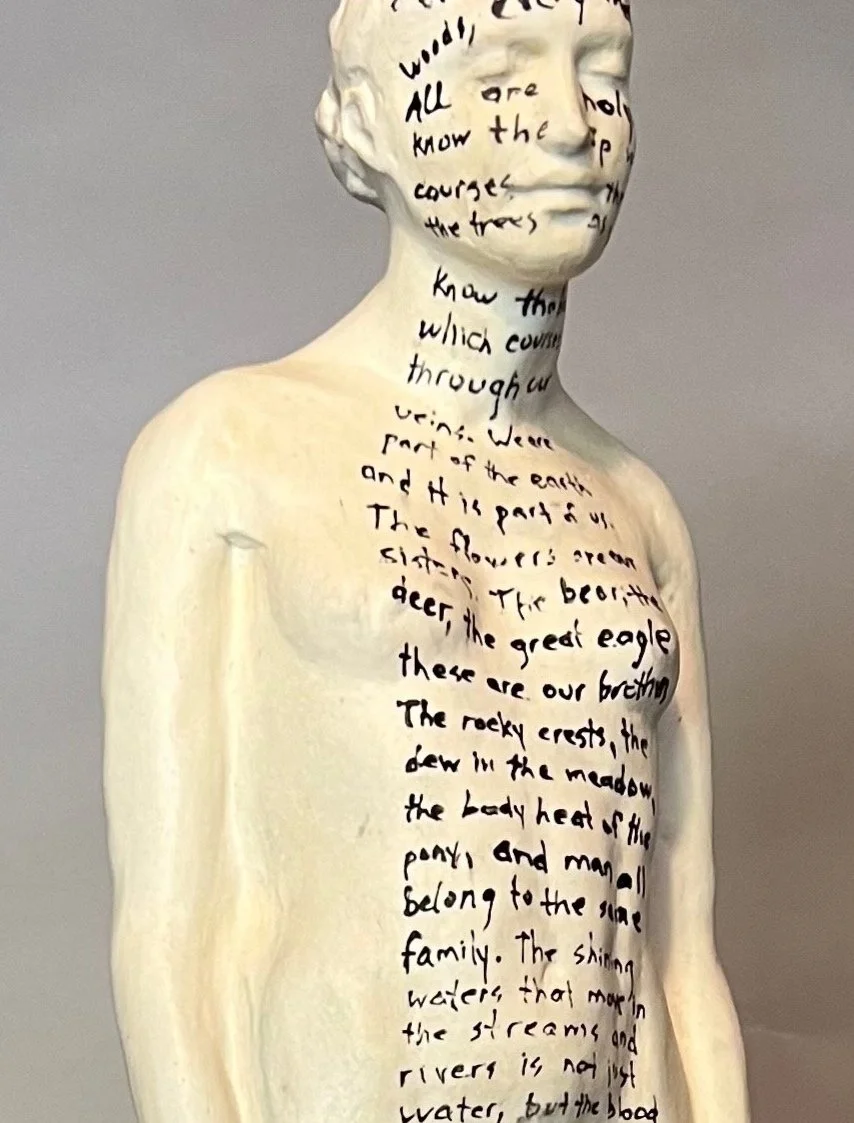 woods,
All are holy
know the
courses
the trees as
Know the
which course
through our
veins. We are
part of the earth
and it is part of us.
The flowers are our
sisters. The bear, the
deer, the great eagle
these are our
The rocky crests, the
dew in the meadow,
the body heat of the
pony, and man all
belong to the same
family. The shining
waters that move in
the streams and
rivers is not just
water, but the blood